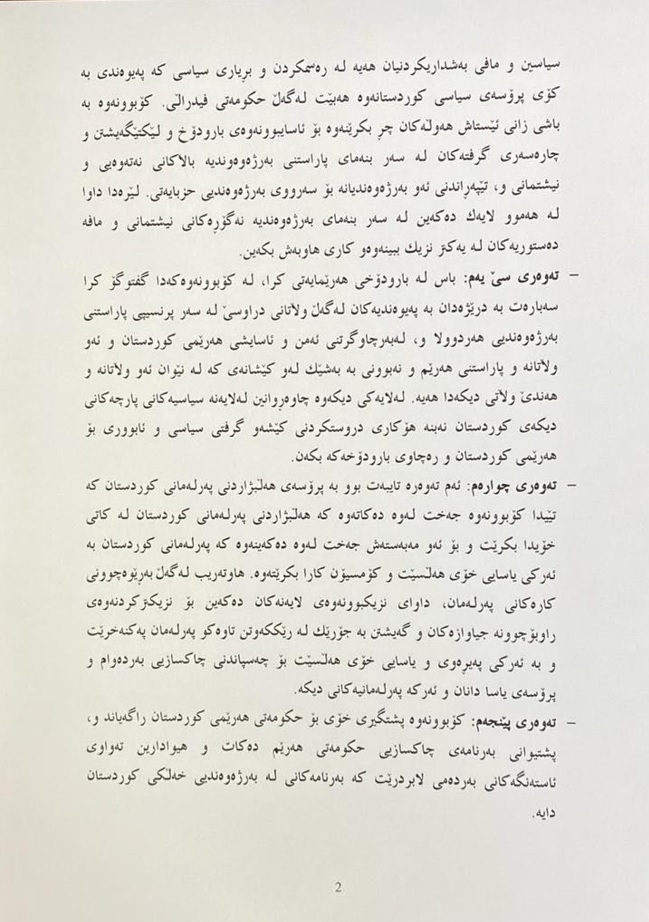 سیاسین و مافی بەشداریکردنیان هەیە لە رەسمکردن و بڕیاری سیاسی کە پەیوەندی بە
کۆی پرۆسەی سیاسی کوردستانەوە هەبێت لەگەڵ حکومەتی فیدراڵی. کۆبوونەوە بە
باشی زانی ئێستاش هەوڵەکان چڕ بکرێنەوە بۆ ئاسایبوونەوەی بارودۆخ و لێکتێگەیشتن و
چارەسەری گرفتەکان لە سەر بنەمای پاراستنی بەرژەوەوندیە بالاکانی نەتەوەیی و
نیشتمانی و، تێپەڕاندنی ئەو بەرژەوەندیانە بۆ سەرووی بەرژەوەندیی حزبایەتی. لێرەدا داوا
لە هەموو لایەك دەکەین لە سەر بنەمای بەرژەوەندیە نەگۆڕەکانی نیشتمانی و مافە
دەستوریەکان لە یەکتر نزیك ببینەوەو کاری هاوبەش بکەین.
– تەوەری سێ یەم: باس لە بارودۆخی هەرێمایەتی کرا، لە کۆبوونەوەکەدا گفتوگۆ کرا
سەبارەت بە درێژەدان بە پەیوەندیەکان لەگەڵ ولاتانی دراوسێ لە سەر پرنسیپی پاراستنی
بەرژەوەندیی هەردوولا و، لەبەرچاوگرتنی ئەمن و ئاسایشی هەرێمی کوردستان و ئەو
ولاتانە و پاراستنی هەرێم و نەبوونی بە بەشێك لەو کێشانەی کە لە نێوان ئەو ولاتانە و
هەندێ ولاتی دیکەدا هەیە. لەلایەکی دیکەوە چاوەڕوانین لەلایەنە سیاسیەکانی پارچەکانی
دیکەی کوردستان نەبنە هۆکاری دروستکردنی کێشەو گرفتی سیاسی و ئابووری بۆ
هەرێمی کوردستان و رەچاوی بارودۆخەکە بکەن.
– تەوەری چوارەم: ئەم تەوەرە تایبەت بوو بە پرۆسەی هەڵبژاردنی پەرلەمانی کوردستان کە
تێیدا کۆبوونەوە جەخت لەوە دەکاتەوە کە هەڵبژاردنی پەرلەمانی کوردستان لە کاتی
خۆیدا بکرێت و بۆ ئەو مەبەستەش جەخت لەوە دەکەینەوە کە پەرلەمانی کوردستان بە
ئەرکی یاسایی خۆی هەڵسێت و کۆمسیۆن کارا بکرێتەوە. هاوتەریب لەگەڵ بەڕێوەچوونی
کارەکانی پەرلەمان، داوای نزیکبوونەوەی لایەنەکان دەکەین بۆ نزیکترکردنەوەی
راوبۆچوونە جیاوازەکان و گەیشتن بە جۆرێك لە رێککەوتن تاوەکو پەرلەمان پەکنەخرێت
و بە ئەرکی پەیڕەوی و یاسایی خۆی هەڵسێت بۆ چەسپاندنی چاکسازیی بەردەوام و
پرۆسەی یاسا دانان و ئەرکە پەرلەمانیەکانی دیکە.
– تەوەری پێنجەم: کۆبوونەوە پشتگیری خۆی بۆ حکومەتی هەرێمی کوردستان راگەیاند و،
پشتیوانی بەرنامەی چاکسازیی حکومەتی هەرێم دەکات و هیوادارین تەواوی
ئاستەنگەکانی بەردەمی لابردرێت کە بەرنامەکانی لە بەرژەوەندیی خەڵکی کوردستان
دایە.
2